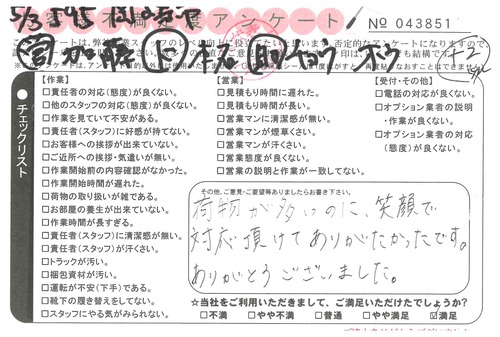 アンケート
№ 043851
チェックリスト
【作業】
□責任者の対応(態度)が良くない。
□他のスタッフの対応(態度)が良くない。
□作業を見ていて不安がある。
□責任者(スタッフ)に好感が持てない。
□お客様への挨拶が出来ていない。
□ご近所への挨拶・気遣いが無い。
□作業開始前の内容確認がなかった。
□作業開始時間が遅れた。
□荷物の取り扱いが雑である。
□お部屋の養生が出来ていない。
□作業時間が長すぎる。
□責任者(スタッフ)に清潔感が無い。
□責任者(スタッフ)が汗くさい。
□トラックが汚い。
□梱包資材が汚い。
□運転が不安(下手)である。
□靴下の履き替えをしてない。
□スタッフにやる気がみられない。
【営業】
□見積もり時間に遅れた。
□見積もり時間が長い。
□営業マンに清潔感が無い。
□営業マンが煙草くさい。
□営業マンが汗くさい。
□営業態度が良くない。
□営業の説明と作業が一致してない。
【受付・その他】
□電話の対応が良くない。
□オプション業者の説明
・作業が良くない。
□オプション業者の対応
(態度)が良くない。
その他、ご意見・ご要望等ありましたらお書き下さい。
荷物が多いのに、笑顔で
対応頂けてありがたかったです。
ありがとうございました。
☆当社をご利用いただきまして、ご満足いただけたでしょうか?
□不満 □やや不満 □普通 □やや満足 ☑満足